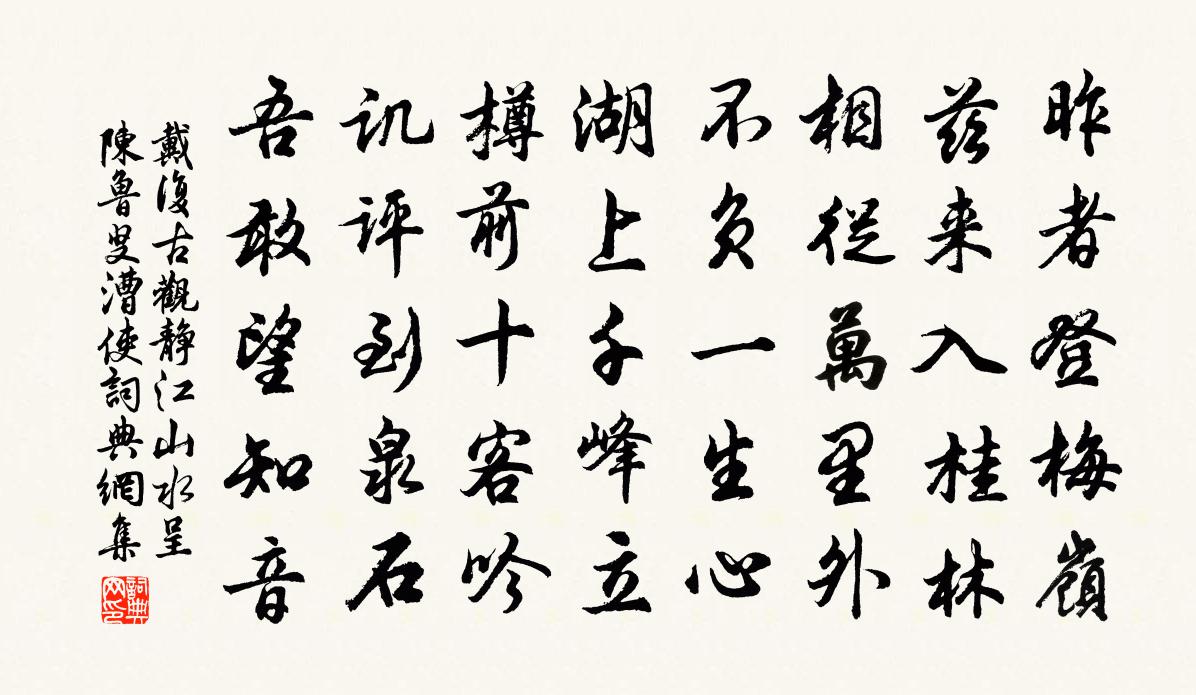 昨者登梅嶺
茲来入桂林
相從萬里外
不負一生心
湖上千峰立
樽前十客吟
讥評到泉石
吾敢望知音
戴復古觀静江山水呈
陳魯叟漕使詞典網集
詞典网印